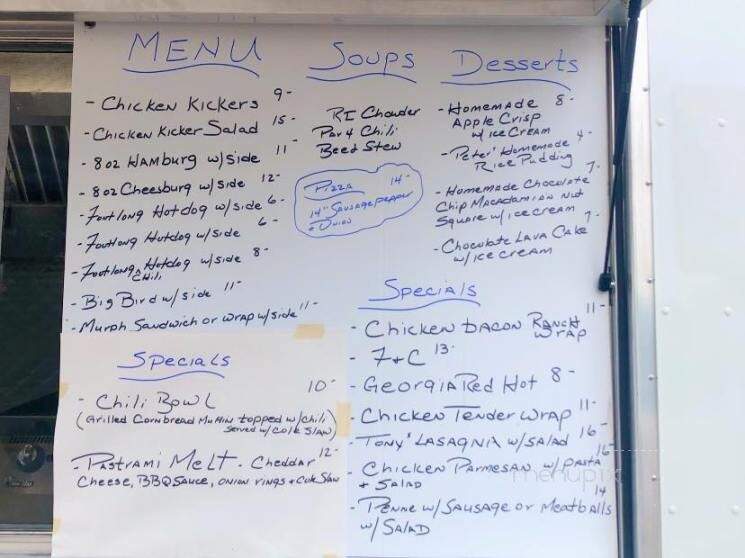 MENU
- Chicken Kickers 9-
- Chicken Kicker Salad 15-
- 8oz Hamburg w/side 11-
- 8oz Cheesburg w/side 12-
- Footlong Hotdog w/side 6-
- Footlong Hotdog w/side 6-
- Footlong Chili Hotdog w/side 8-
- Big Bird w/side 11-
- Murph Sandwich or wrap w/side 11-
Specials
- Chili Bowl 10-
(Grilled Cornbread Muffin topped w/chili
served w/Cole Slaw)
- Pastrami Melt - Cheddar 12-
Cheese, BBQ Sauce, onion rings + Cole Slaw
Soups
RI Chowder
Par 4 Chili
Beef Stew
Pizza 14-
14" Sausage pepper
+ Onion
Desserts
- Homemade 8-
Apple Crisp
w/ ice cream
- Peter' Homemade 4-
Rice Pudding
- Homemade Chocolate 7-
Chip Macadamian Nut
Square w/ice cream
- Chocolate Lava Cake 7-
w/ice cream
Specials
- Chicken Bacon Ranch 11-
Wrap
- F+C 13-
- Georgia Red Hot 8-
- Chicken Tender Wrap 11-
- Tony' Lasagnia w/salad 16-
- Chicken Parmesan w/pasta 16-
+ Salad
- Penne w/Sausage or Meatballs 14
w/Salad
menupix